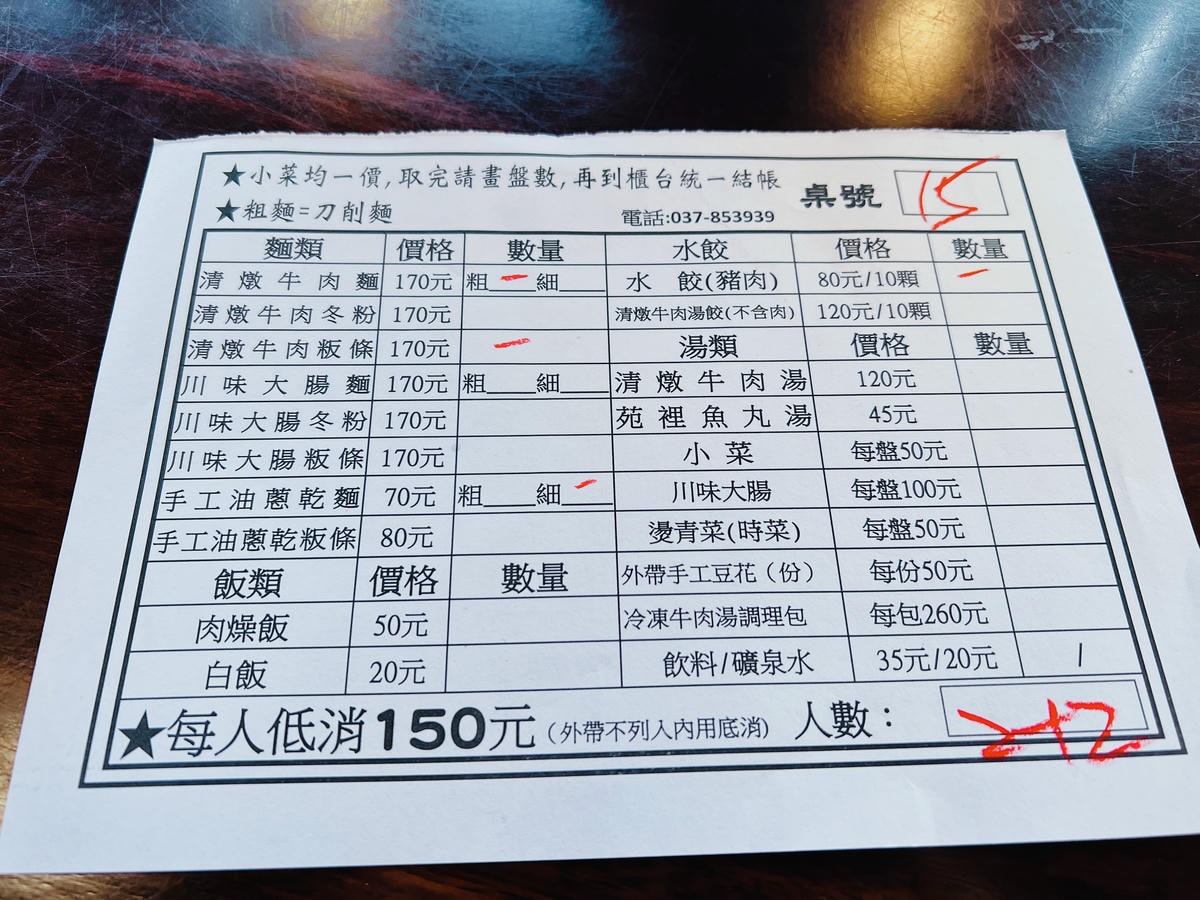 ★小菜均一價,取完請畫盤數,再到櫃台統一結帳
★粗麵=刀削麵
電話:037-853939
桌號 15
麵類 價格 數量 水餃 價格 數量
清燉牛肉麵 170元 粗 一 細___ 水 餃(豬肉) 80元/10顆 一
清燉牛肉冬粉 170元 清燉牛肉湯餃(不含肉) 120元/10顆
清燉牛肉粄條 170元 一 湯類 價格 數量
川味大腸麵 170元 粗____細____ 清燉牛肉湯 120元
川味大腸冬粉 170元 苑裡魚丸湯 45元
川味大腸粄條 170元 小菜 每盤50元
手工油蔥乾麵 70元 粗____細 一 川味大腸 每盤100元
手工油蔥乾粄條 80元 燙青菜(時菜) 每盤50元
飯類 價格 數量 外帶手工豆花（份） 每份50元
肉燥飯 50元 冷凍牛肉湯調理包 每包260元
白飯 20元 飲料/礦泉水 35元/20元 /
★每人低消150元(外帶不列入內用底消) 人數： 2+2